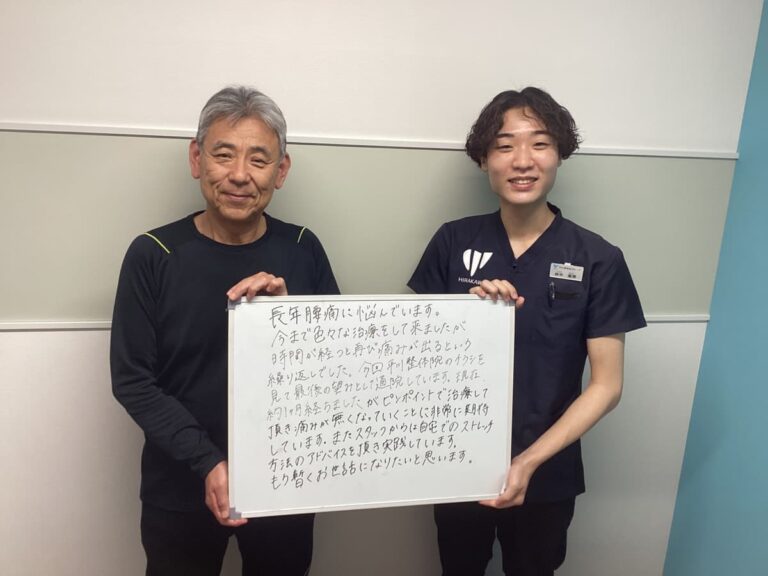 長年腰痛に悩んでいます。
今まで色々な治療をして来ましたが
時間が経つと再び痛みが出るという
繰り返しでした。今回平川整体院のチラシを
見て最後の望みとして通院しています。現在、
約1ヶ月経ちましたがピンポイントで治療して
頂き痛みが無くなっていくことに非常に期待
しています。またスタッフからは自宅でのストレッチ
方法のアドバイスを頂き実践しています。
もう暫くお世話になりたいと思います。
HIRAKAW